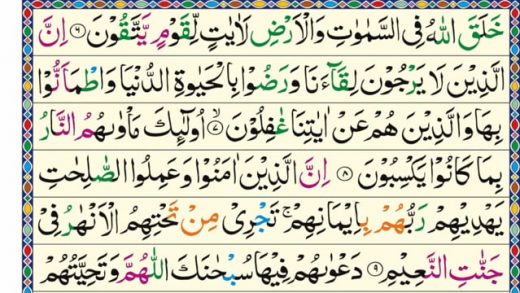 خَلَقَ اللّٰهُ فِی السَّمٰوٰتِ وَالْاَرْضِ لَاٰیٰتٍ لِّقَوْمٍ یَّتَّقُوْنَ ۝۶ اِنَّ
الَّذِیْنَ لَا یَرْجُوْنَ لِقَآءَنَا وَرَضُوْا بِالْحَیٰوةِ الدُّنْیَا وَاطْمَاَنُّوْا
بِهَا وَالَّذِیْنَ هُمْ عَنْ اٰیٰتِنَا غٰفِلُوْنَ ۝۷ۙ اُولٰٓئِكَ مَاْوٰىهُمُ النَّارُ
بِمَا كَانُوْا یَكْسِبُوْنَ ۝۸ اِنَّ الَّذِیْنَ اٰمَنُوْا وَعَمِلُوا الصّٰلِحٰتِ
یَهْدِیْهِمْ رَبُّهُمْ بِاِیْمَانِهِمْ ۚ تَجْرِیْ مِنْ تَحْتِهِمُ الْاَنْهٰرُ فِیْ
جَنّٰتِ النَّعِیْمِ ۝۹ دَعْوٰىهُمْ فِیْهَا سُبْحٰنَكَ اللّٰهُمَّ وَتَحِیَّتُهُمْ